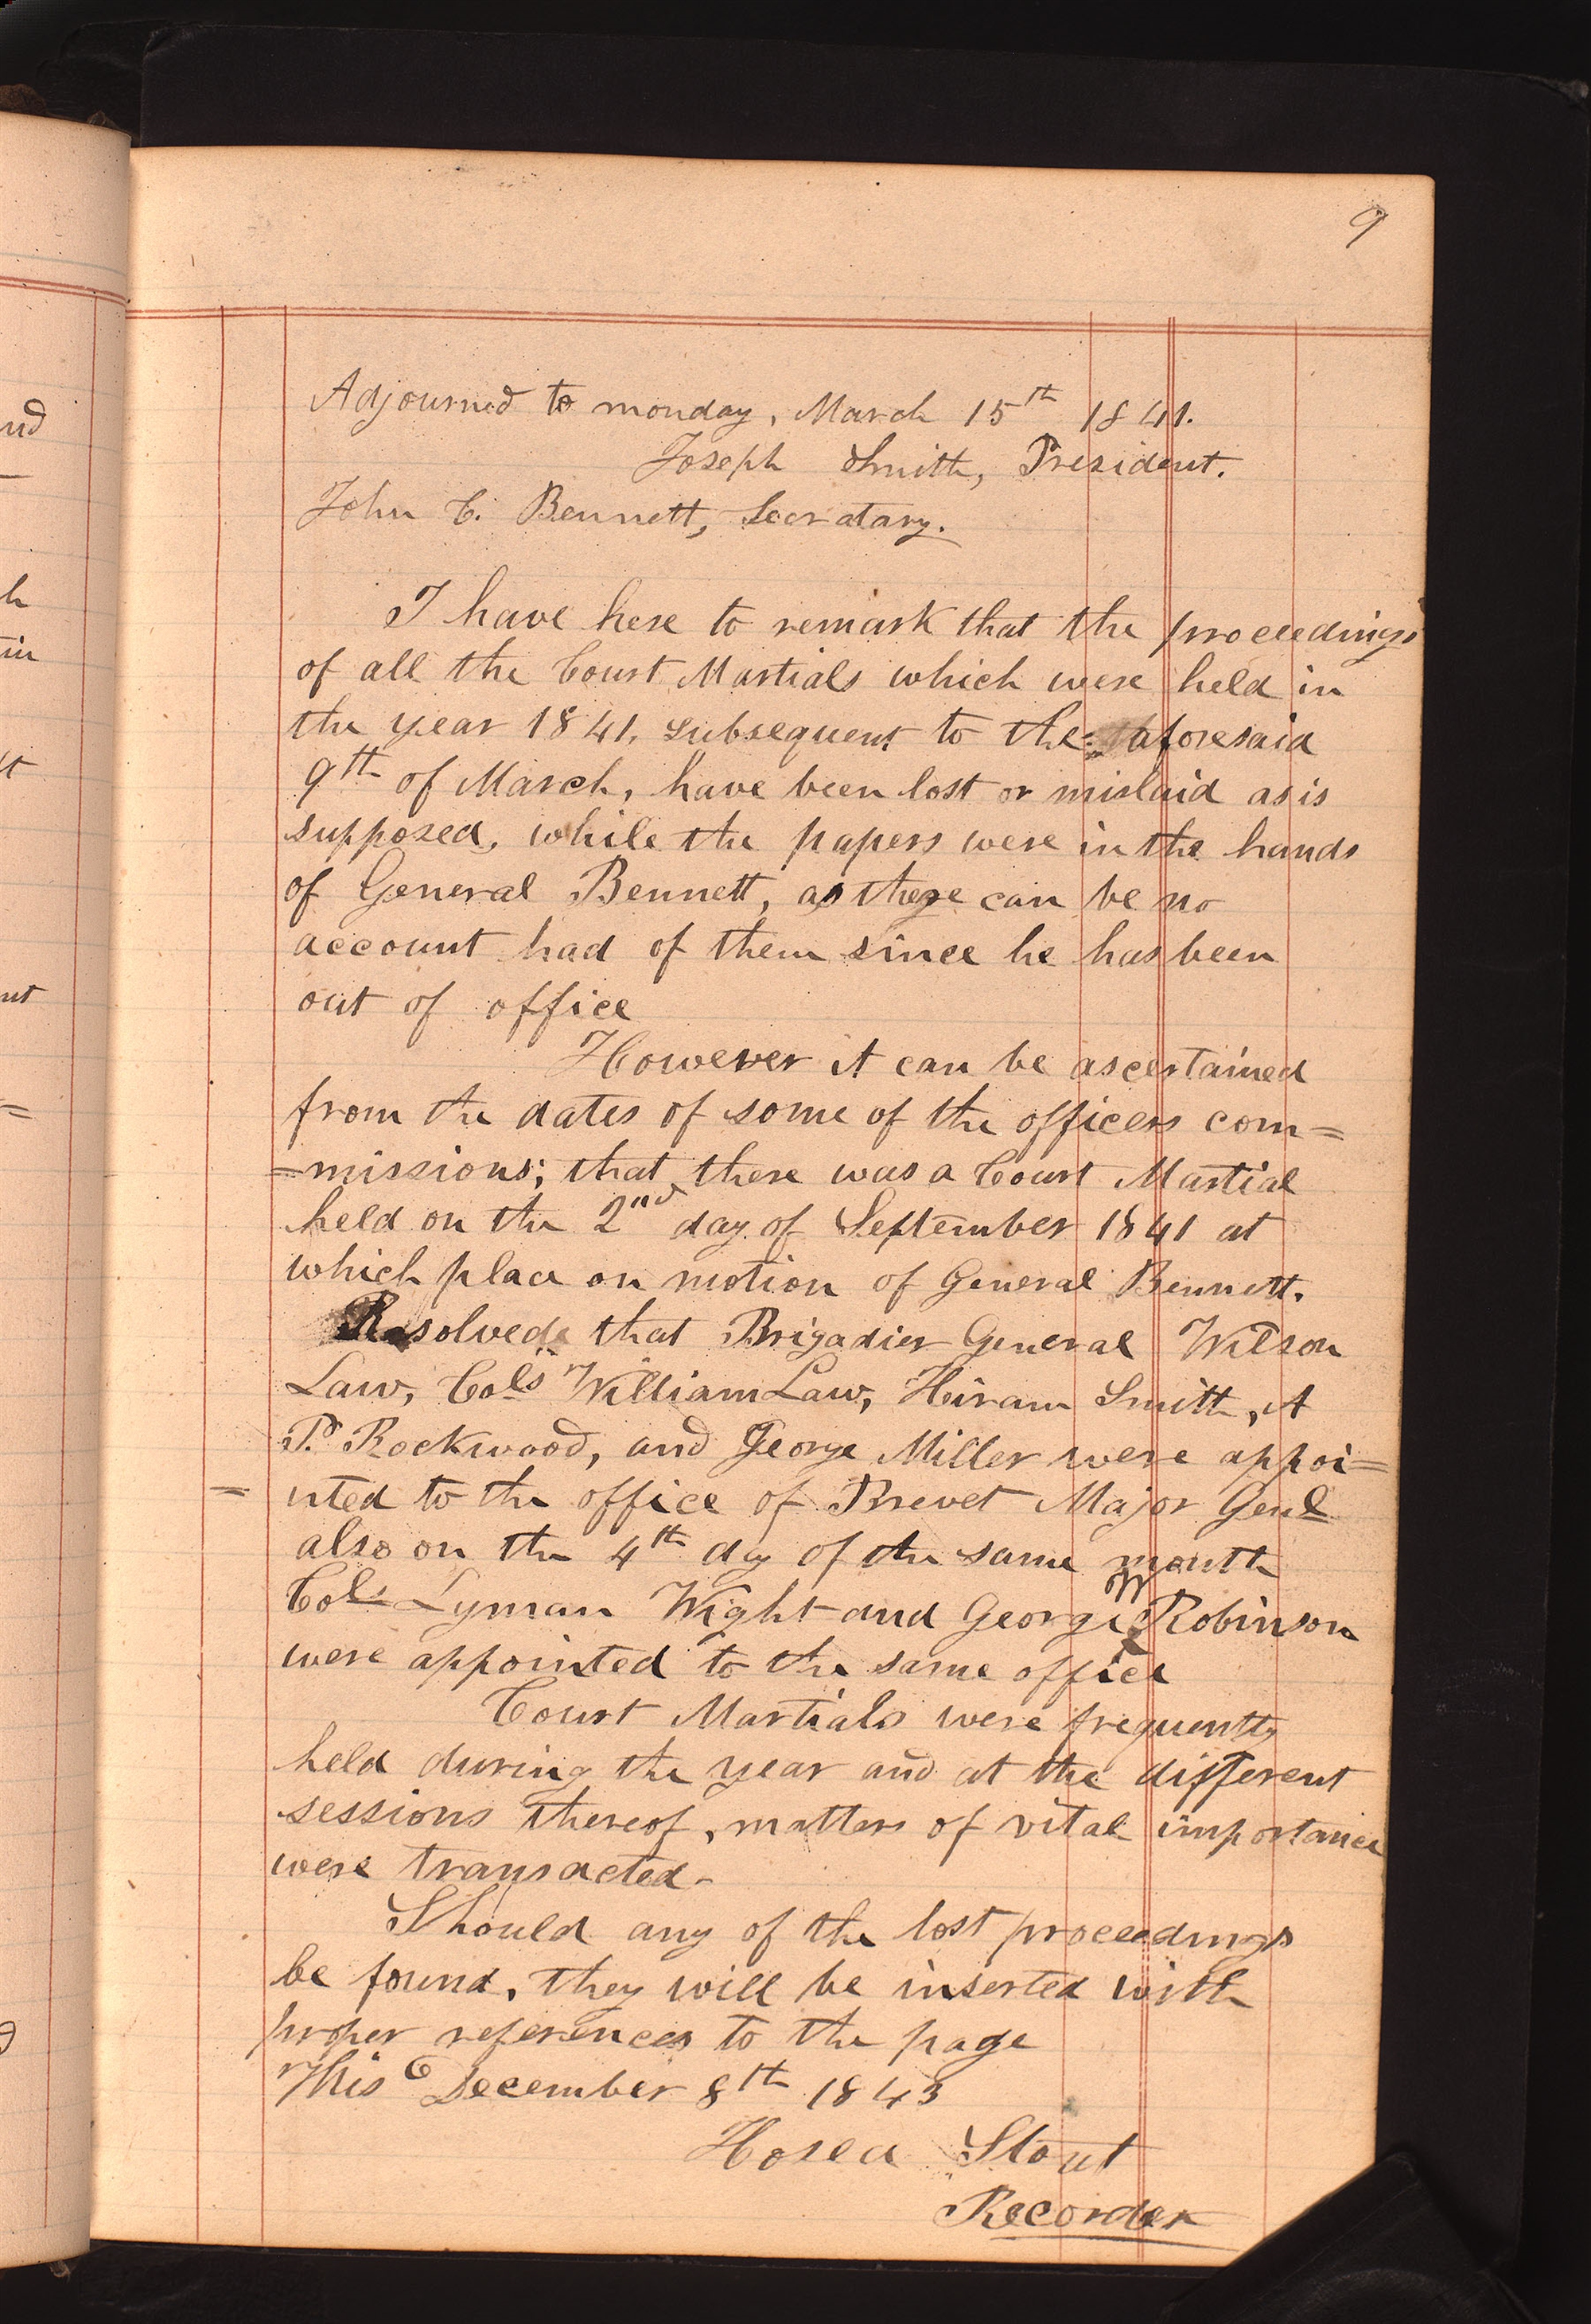 9
Adjourned to monday, March 15th 1841.
Joseph Smith, President.
John C. Bennett, Secratary.
I have here to remark that the proceedings
of all the Court Martials which were held in
the year 1841, subsequent to the aforesaid
9th of March, have been lost or mislaid as is
supposed, while the papers were in the hands
of General Bennett, as there can be no
account had of them since he has been
out of office
However it can be ascertained
from the dates of some of the officers com=
=missions; that there was a Court Martial
held on the 2nd day of September 1841 at
which place on motion of General Bennett.
Resolved that Brigadier General Wilson
Law, Cols William Law, Hiram Smith, A
P. Rockwood, and George Miller were appoi=
=nted to the office of Brevet Major Genl
also on the 4th day of the same month
Cols Lyman Wight and George W Robinson
were appointed to the same office
Court Martials were frequently
held during the year and at the different
sessions thereof, matters of vital importance
were transacted-
Should any of the lost proceedings
be found, they will be inserted with
proper references to the page
This December 8th 1843
Hosea Stout
Recorder
nd
h
in
nt
=